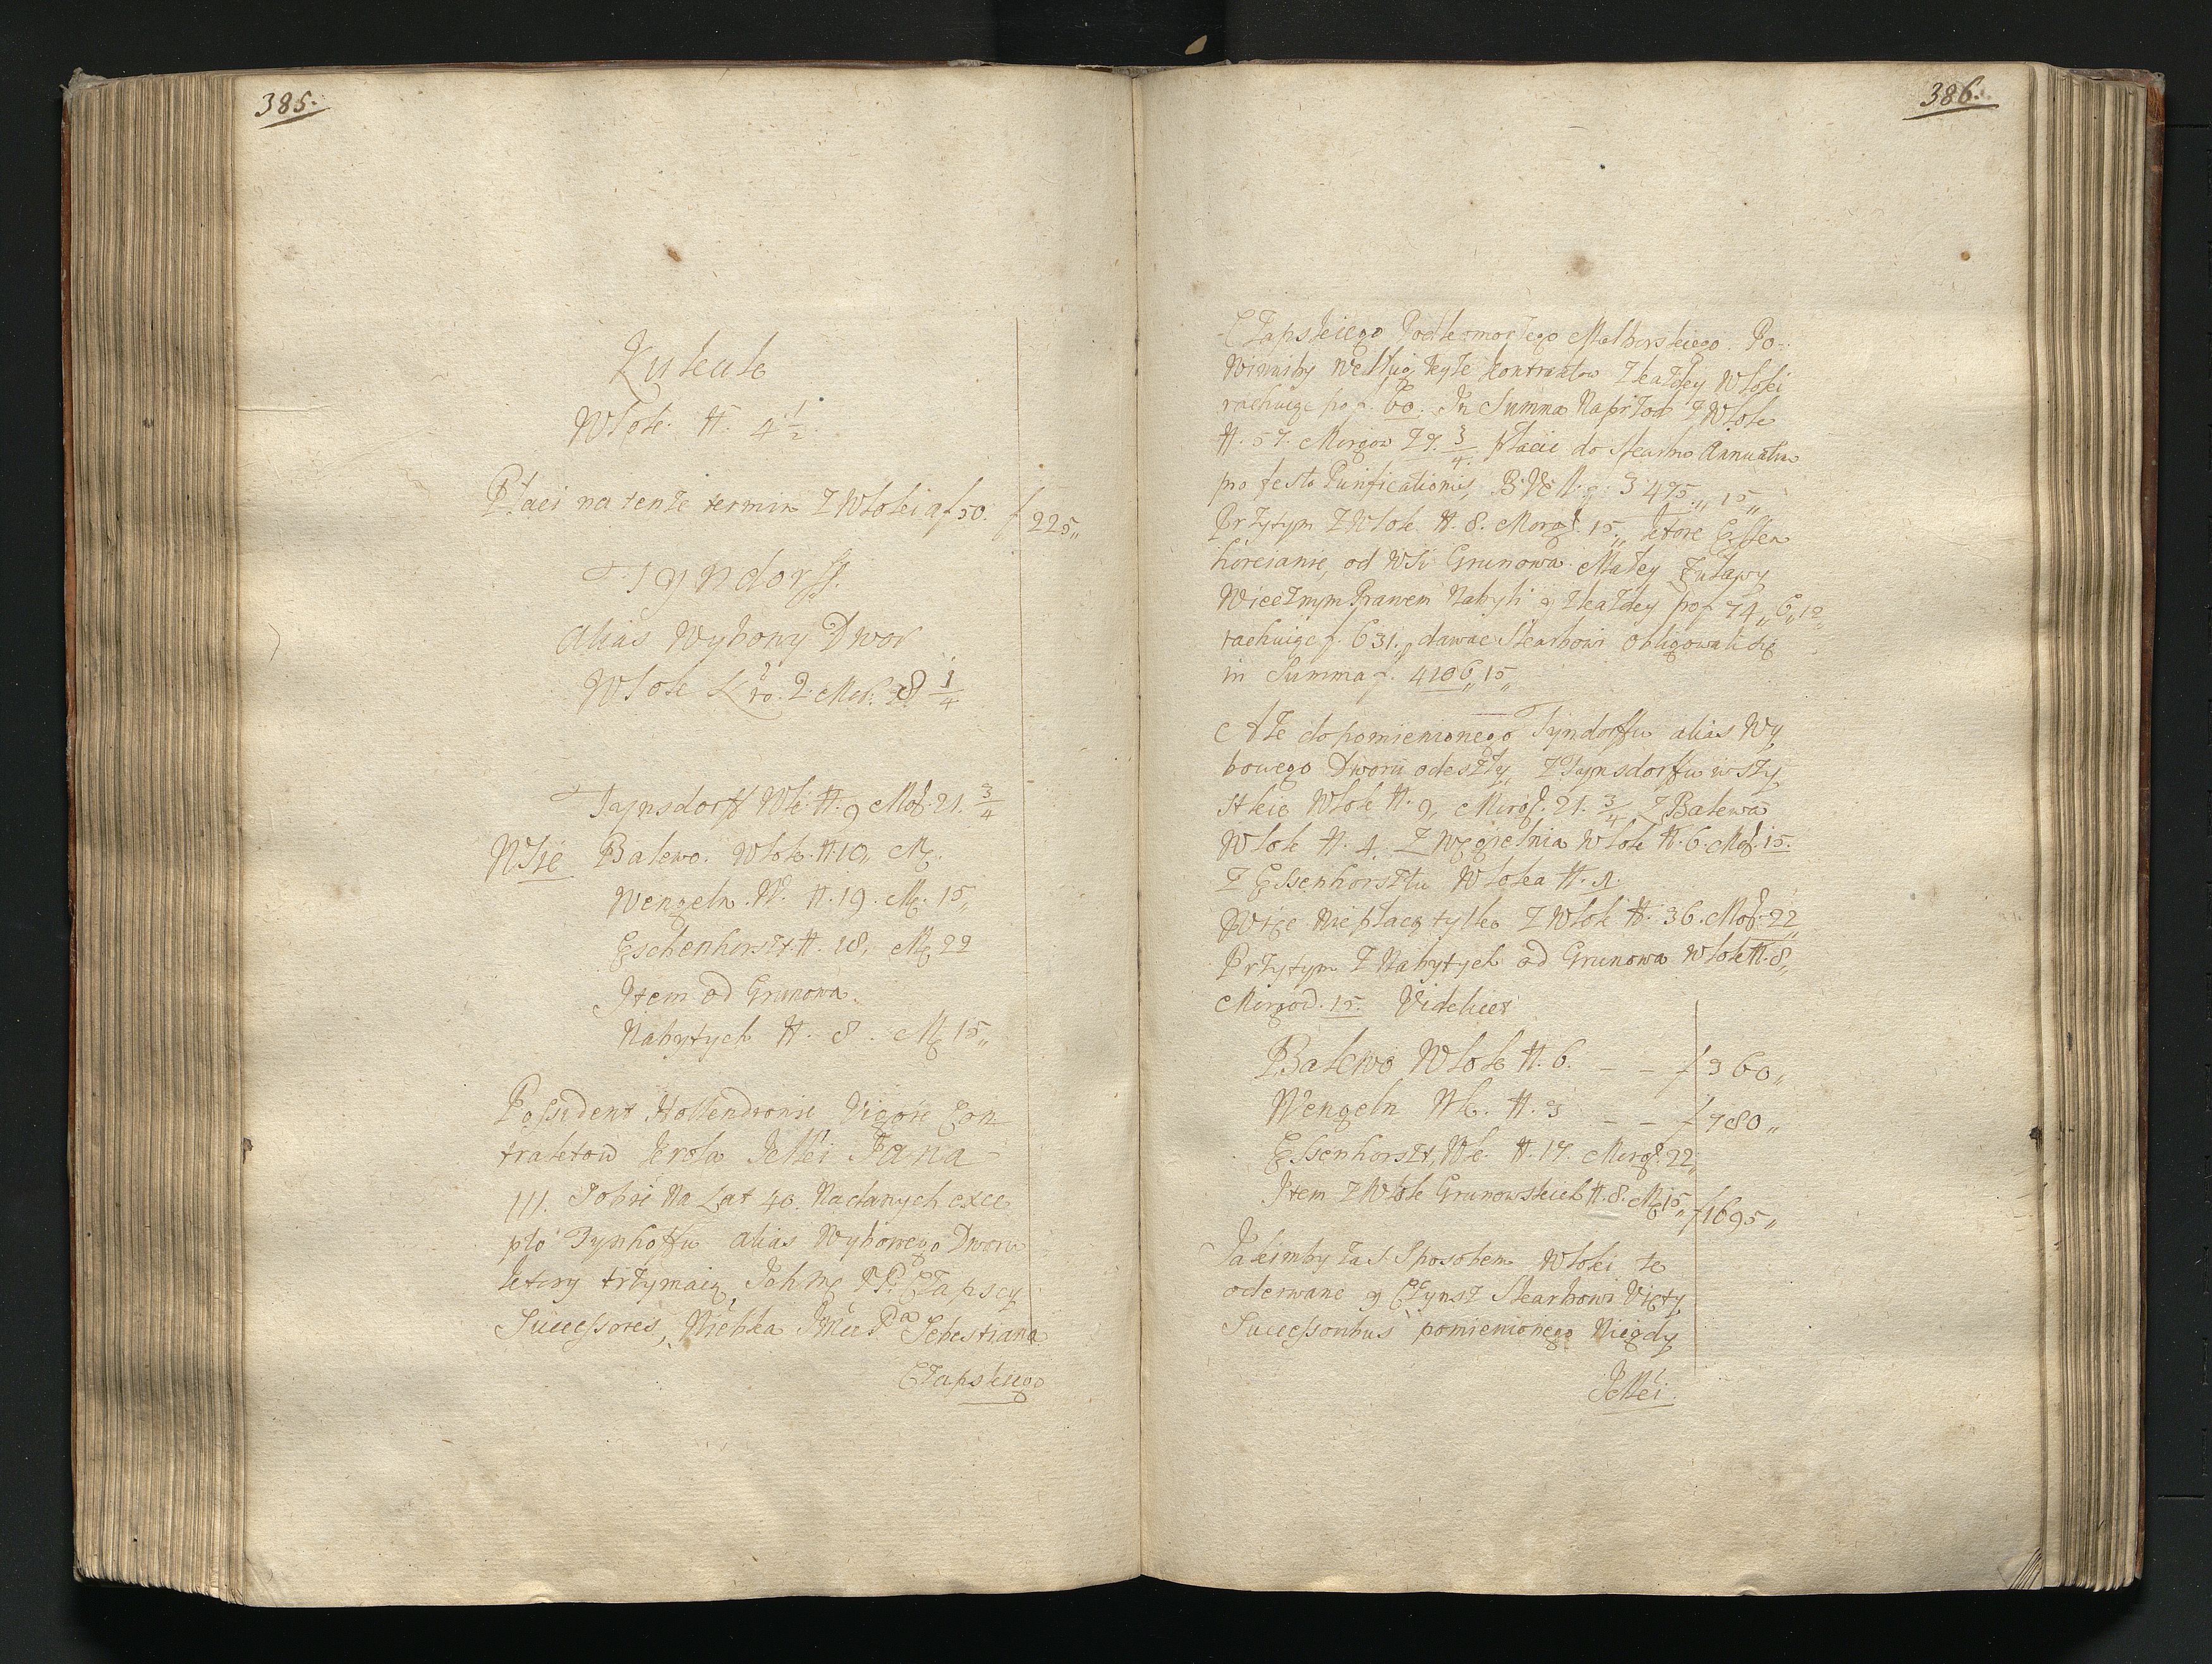 385.
Kukuk
Włok. #. 4 1/2.
Płaci na tenże termin Z Włoki a f 50. f 225,,
Tyndorff.
alias Wybowy Dwor
Włok 2. Mor. 28 1/4
Taynsdorff Wł: #. 9 Mor. 21. 3/4
Wsie Balewo. Włok. #. 10,, M.
Wengeln. W. #. 19. M. 15,,
Eschenhorszt. #. 18, M 22
Item od Grunowa.
Nabytych #. 8. M 15,,
Possident Hollendrowie Vigore Con
traktow Krola JeMci Jana
III. Sobie Na Lat 40. Nadanych exce
pto Tynhoffu alias Wybowego Dworu
ktory trzymaią Ich Mę PP. CZapscy
Successores, Niebka JMci Pa Sebestiana
CZapskiego
386.
CZapskiego Podkomorzego Malborskiego. Po-
Winniby Według tychże Kontraktow Z każdey Włoki
rachuiąc po f. 60. In Summa Naprzod Z Włok
#. 57. Morgow 27. 3/4. płacić do Skarbu Annuatim
pro festo Purificationis, B. V. M. f. 3475,, 15,,
Przytym Z Włok #. 8. Morg. 15,, ktore Essen
horcianie, od Wsi Grunowa Małey Żuławy
Wiecznym Prawem Nabyli y Z każdey po f 74,, 6,, 12,,
rachuiąc f. 631.,, dawac Skarbowi obligowali się
in Summa f. 4106,, 15,,
Ale do pomienionego Tyndorffu alias Wy
bowego Dworu odeszły, Z Taynsdorffu wszy
stkie Włok #. 9, Morg. 21. 3/4 Z Balewa
Włok #. 4. Z Węgielnia Włok #. 6. Mor. 15.
Z Essenhorsztu Włoka #. 1.
Więc Nie płacą tylko Z Włok #. 36. Mor. 22,,
Przytym Z Nabytych od Grunowa Włok #. 8,,
Morgow. 15. Videlicet
Balewo Włok #. 6. - - f 360,,
Wengeln Wł. #. 3 - - f 780,,
Essenhorszt, Wł. #. 17. Morg. 22,,
Item Z Włok Grunowskich #. 8. M 15,, f 1695,,
Jakimby zas Sposobem Włoki te
oderwane y CZynsz Skarbowi Vięty
Successoribus pomienionego Niegdy
JeMci